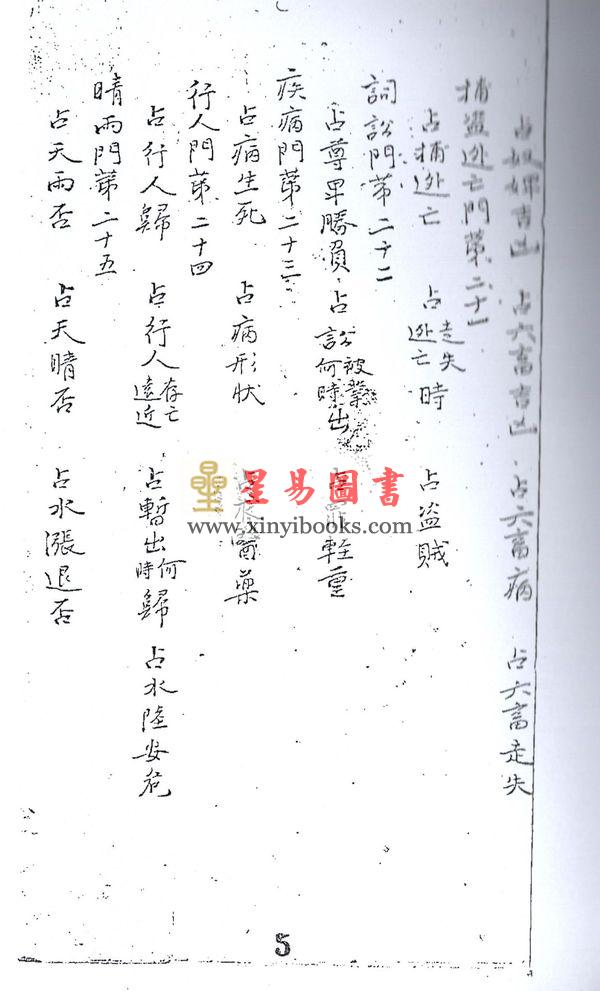 占奴婢吉凶 占六畜吉凶 占六畜病 占六畜走失
捕盗逃亡門第二十一
占捕逃亡 占走失逃亡時 占盗賊
詞訟門第二十二
占尊卑勝負 占訟何時出 輊重
疾病門第二十三
占病生死 占病形狀 藥
行人門第二十四
占行人歸 占行人存亡遠近 占暫出何時歸 占水陸安危
晴雨門第二十五
占天雨否 占天晴否 占水漲退否
星易圖書
www.xinyibooks.com
5